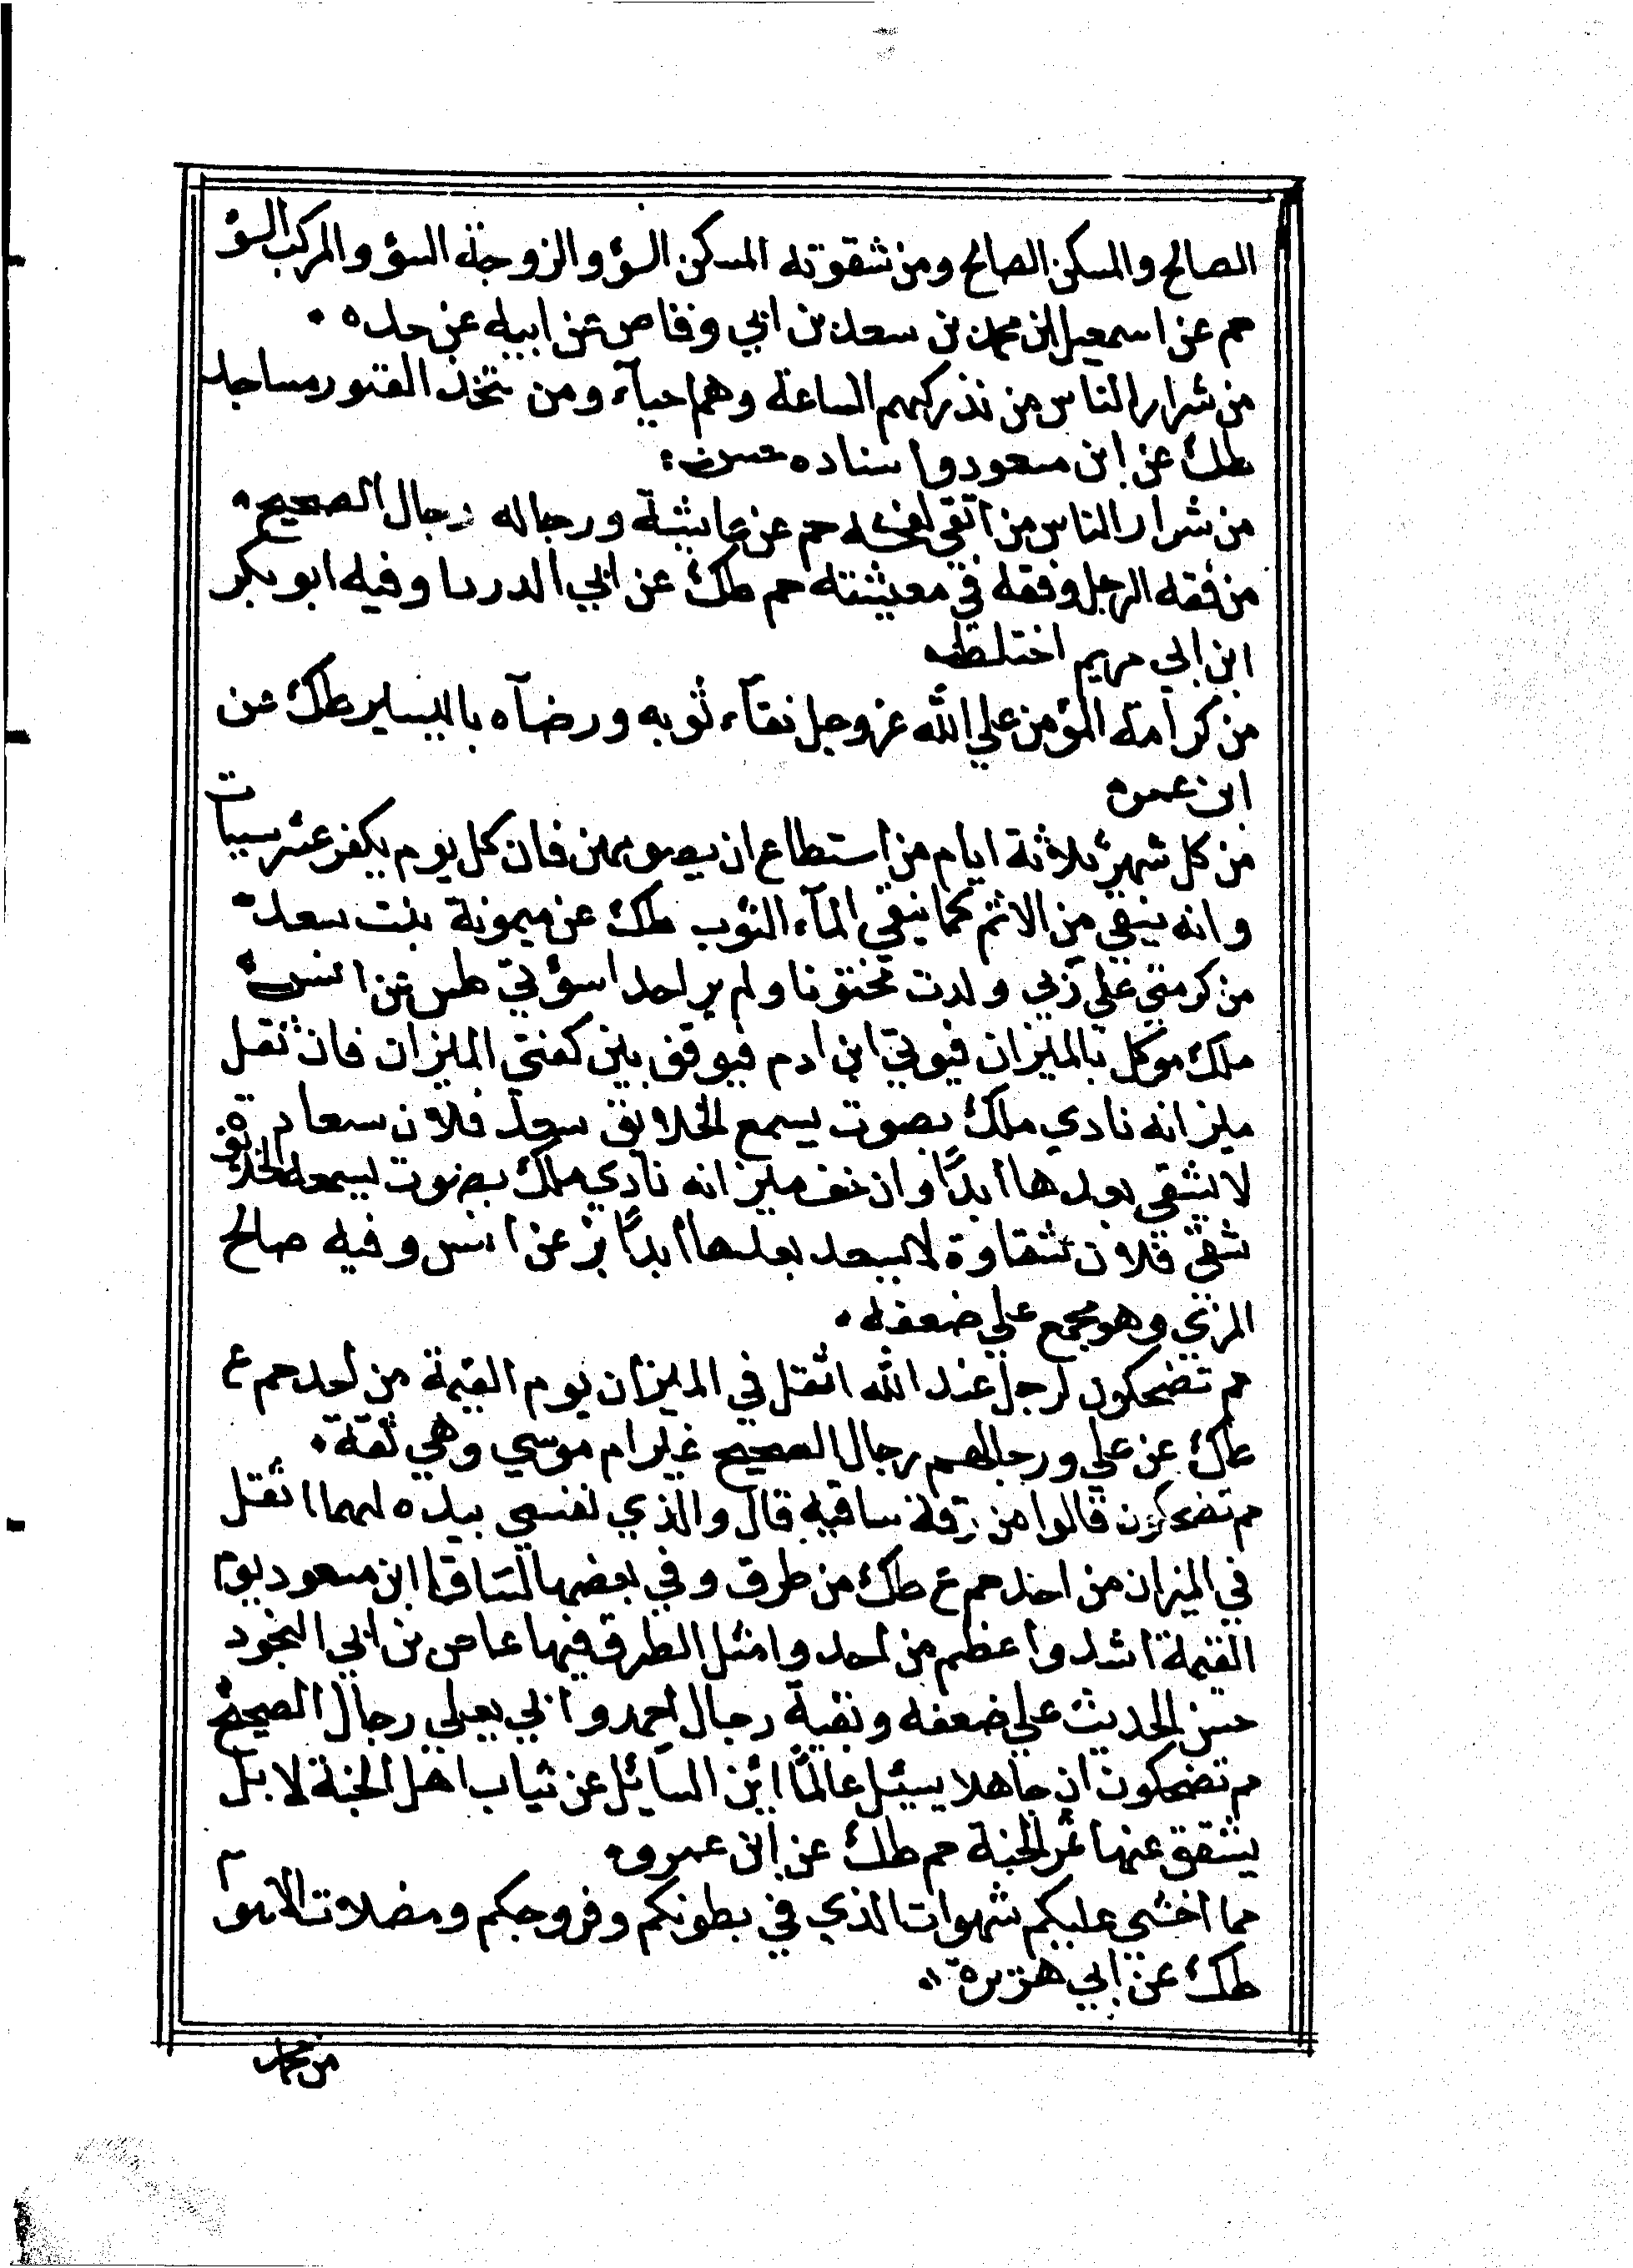 الصالح والمسكن الصالح ومن شقوته المسكن السؤ والزوجة السؤ والمركب السؤ
حم عن اسمعيل ابن محمد بن سعد بن ابي وقاص عن ابيه عن جده
من شرار الناس من تدركهم الساعة وهم احياء ومن يتخذ القبور مساجد
طك عن ابن مسعود واسناده حسن
من شرار الناس من اتقي لفحشه حم عن عايشة ورجاله رجال الصحيح
من فقه الرجل وفقه في معيشته حم طك عن ابي الدردا وفيه ابو بكر
ابن ابي مريم اختلط
من كرامة المؤمن علي الله عز وجل نقآء ثوبه ورضآه باليسير طك عن
ابن عمر
من كل شهر ثلاثة ايام من استطاع ان يصومهن فان كل يوم يكفر عشر سيات
وانه ينقي من الاثم كما ينقي المآء الثوب طك عن ميمونة بنت سعد
من كرمتي علي ربي ولدت مختونا ولم ير احد اسؤتي طس عن انس
ملك موكل بالميزان فيوتي ابن ادم فيوقف بين كفتي الميزان فان ثقل
ميزانه نادي ملك بصوت يسمع الخلايق سعد فلان سعادة
لا يشقي بعدها ابدًا وان خف ميزانه نادي ملك بصوت يسمعه الخلائق
شقي فلان شقاوة لا يسعد بعدها ابدًا بز عن انس وفيه صالح
المزي وهو مجمع علي ضعفه
مم تضحكون لرجل عند الله اثقل في الميزان يوم القيمة من احد حم ع
طك عن علي ورجالهم رجال الصحيح غير ام موسي وهي ثقة
مم تضحكون قالوا من رقة ساقيه قال والذي نفسي بيده لهما اثقل
في الميزان من احد حم ع طك من طرق وفي بعضها لساقا ابن مسعود يوم
القيمة اشد واعظم من احد وامثل الطرق فيها عاصم بن ابي النجود
حسن الحديث علي ضعفه وبقية رجال احمد وابي يعلي رجال الصحيح
مم تضحكون ان جاهلا يسئل عالمًا اين السائل عن ثياب اهل الجنة لا بل
يشقق عنها ثمر الجنة حم طك عن ابن عمرو
مما اخشي عليكم شهوات الذي في بطونكم وفروجكم ومضلات الاهوا
طك عن ابي هريرة
من محمد